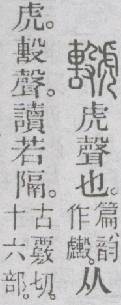 虎聲也。篇韵作。从
虎。毄聲。讀若隔。古覈切。十六部。